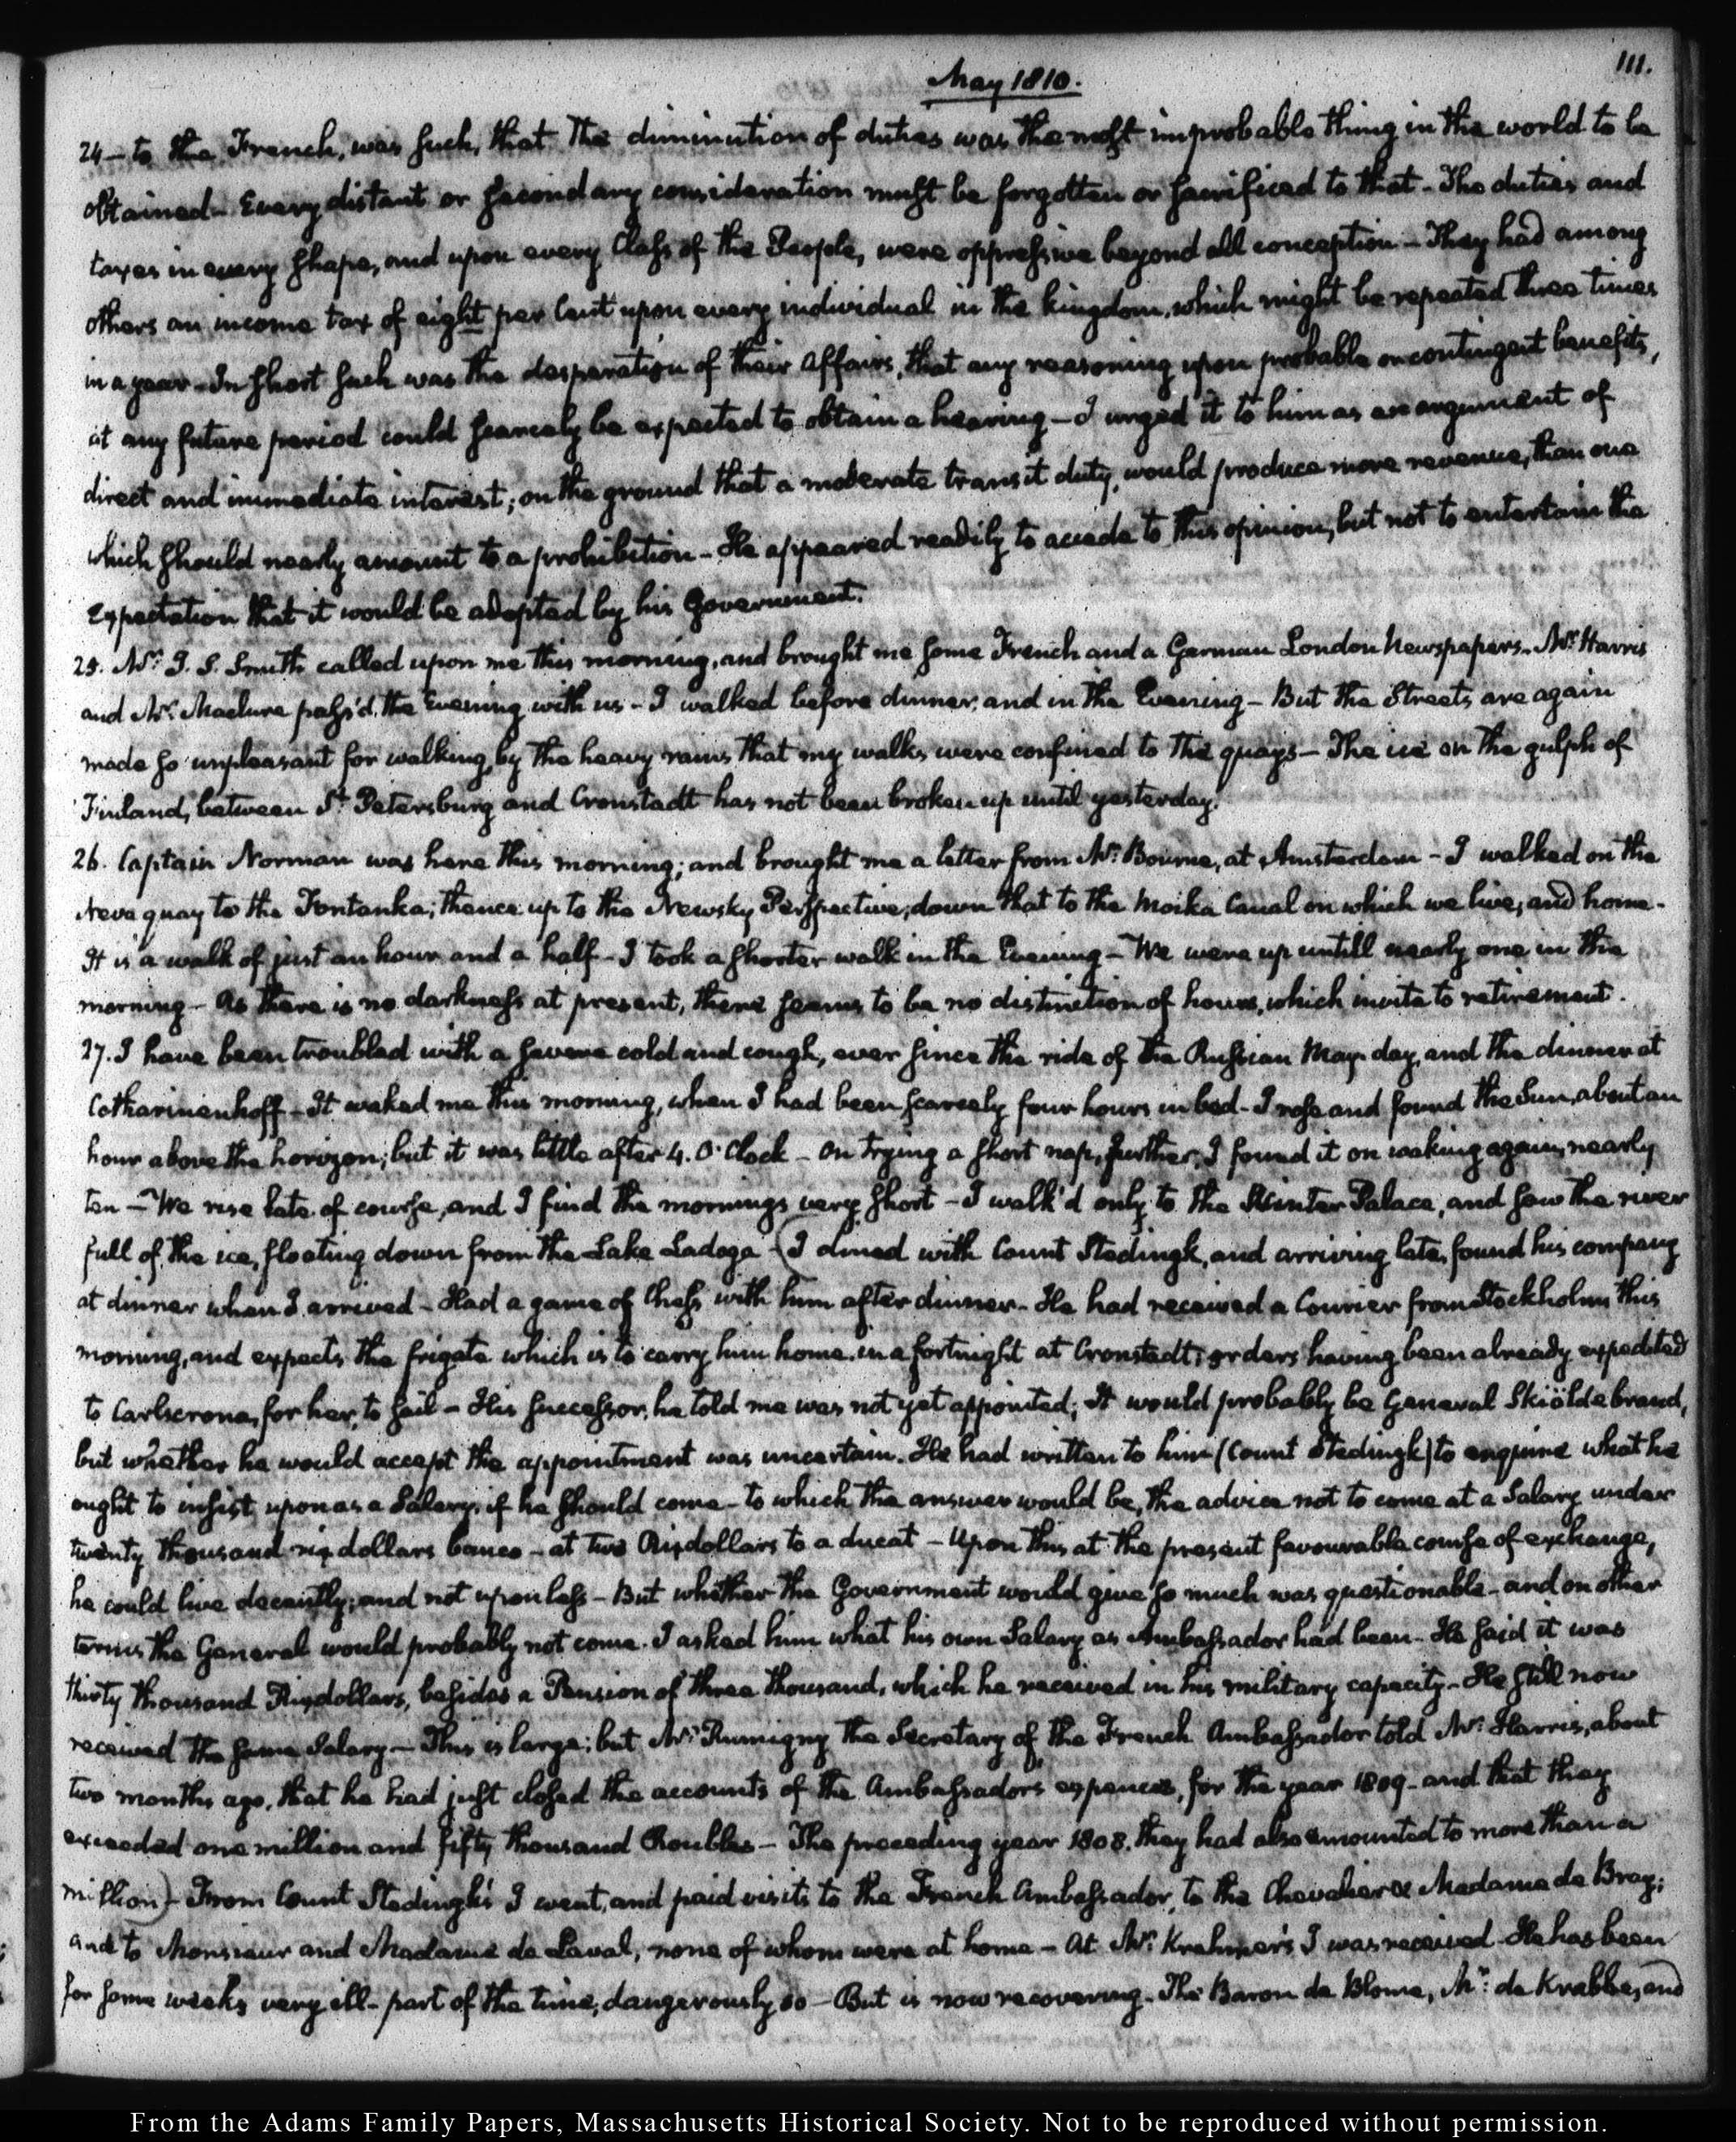 111.
May 1810.
24 — to the French, was such, that the diminution of duties was the most improbable thing in the world to be
obtained — Every distant or secondary consideration must be forgotten or sacrificed to that — The duties and
taxes in every shape, and upon every Class of the People, were oppressive beyond all conception — They had among
others an income tax of eight per Cent upon every individual in the kingdom, which might be repeated three times
in a year — In short such was the desperation of their affairs, that any reasoning upon probable or contingent benefits,
at any future period could scarcely be expected to obtain a hearing — I urged it to him as an argument of
direct and immediate interest; on the ground that a moderate transit duty, would produce more revenue, than one
which should nearly amount to a prohibition — He appeared readily to accede to this opinion, but not to entertain the
Expectation that it would be adopted by his Government.
25. Mr. J. S. Smith called upon me this morning, and brought me some French and a German London Newspapers. Mr. Harris
and Mr. Maclure pass'd the Evening with us — I walked before dinner, and in the Evening — But the Streets are again
made so unpleasant for walking, by the heavy rains that my walks were confined to the quays — The ice on the gulph of
Finland, between St. Petersburg and Cronstadt has not been broken up until yesterday.
26. Captain Norman was here this morning; and brought me a letter from Mr. Bourne, at Amsterdam — I walked on the
Neva quay to the Fontanka; thence up to the Newsky Perspective, down that to the Moika Canal on which we live, and home.
It is a walk of just an hour and a half — I took a shorter walk in the Evening — We were up untill nearly one in the
morning — As there is no darkness at present, there seems to be no distinction of hours, which invite to retirement.
27. I have been troubled with a severe cold and cough, ever since the ride of the Russian May-day, and the dinner at
Catharinenhoff — It waked me this morning, when I had been scarcely four hours in bed — I rose and found the Sun, about an
hour above the horizon; but it was little after 4. O'Clock — On trying a short nap, further, I found it on waking again, nearly
ten — We rise late of course, and I find the mornings very short — I walk'd only to the Winter Palace, and saw the river
full of the ice, floating down from the Lake Ladoga — (I dined with Count Stedingk, and arriving late, found his company
at dinner when I arrived — Had a game of Chess with him after dinner — He had received a Courier from Stockholm this
morning, and expects the frigate which is to carry him home in a fortnight at Cronstadt; orders having been already expedited
to Carlscrona, for her, to sail — His successor, he told me was not yet appointed; It would probably be General Skiöldebrand,
but whether he would accept the appointment was uncertain. He had written to him (Count Stedingk) to enquire what he
ought to insist upon as a Salary, if he should come — to which the answer would be, the advice not to come at a Salary under
twenty thousand rixdollars banco — at two Rixdollars to a ducat — Upon this at the present favourable course of exchange,
he could live decently; and not upon less — But whether the Government would give so much was questionable — and on other
terms the General would probably not come. I asked him what his own Salary as Ambassador had been — He said it was
thirty thousand Rixdollars, besides a Pension of three thousand, which he received in his military capacity — He still now
received the same Salary — This is large; but Mr. Rumigny the Secretary of the French Ambassador told Mr. Harris, about
two months ago, that he had just closed the accounts of the Ambassadors expences, for the year 1809 — and that they
exceeded one million and fifty thousand Roubles — The preceding year 1808. they had also amounted to more than a
million) — From Count Stedingk's I went, and paid visits to the French Ambassador, to the Chevalier & Madame de Bray;
and to Monsieur and Madame de Laval, none of whom were at home — At Mr. Krehmer's I was received. He has been
for some weeks very ill — part of the time, dangerously so — But is now recovering — The Baron de Blome, Mr. de Krabbe, and
From the Adams Family Papers, Massachusetts Historical Society. Not to be reproduced without permission.